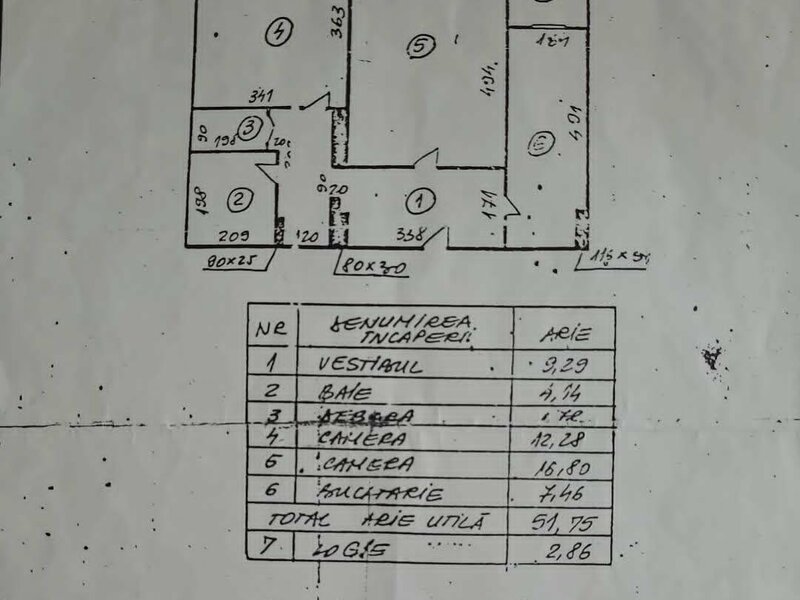 4
363
5
494
181
491
341
90
3
198
20
198
2
90
20
1
171
209
120
338
80x30
NR DENUMIREA ÎNCAPERII ARIE
1 VESTIBUL 9,29
2 BAIE 4,14
3 DEBARA
4 CAMERA 12,28
5 CAMERA 16,80
6 BUCATARIE 7,46
TOTAL ARIE UTILĂ 51,75
7 LOGIE 2,86